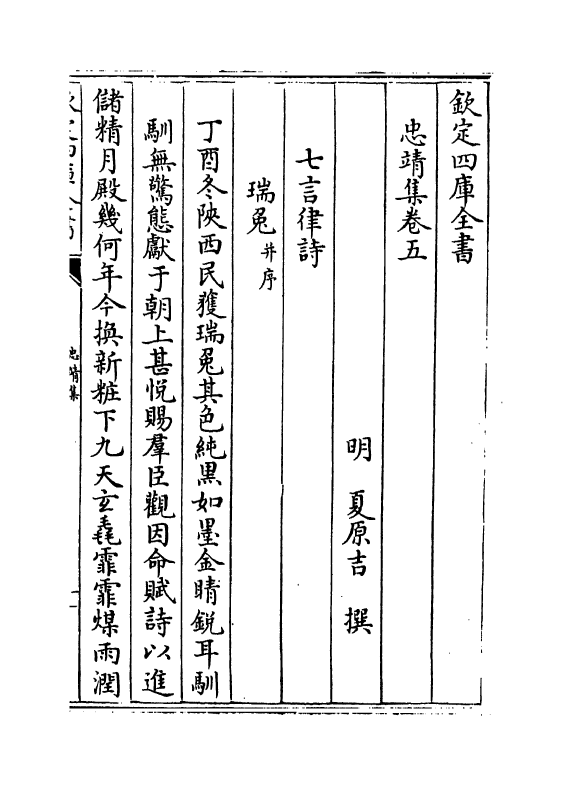 欽定四庫全書
忠靖集卷五
明 夏原吉 撰
七言律詩
瑞兔 并序
丁酉冬陜西民獲瑞兔其色純黑如墨金睛銳耳馴
馴無驚態獻于朝上甚悅賜羣臣觀因命賦詩以進
儲精月殿幾何年今換新粧下九天玄毳霏霏煤雨潤
忠靖集